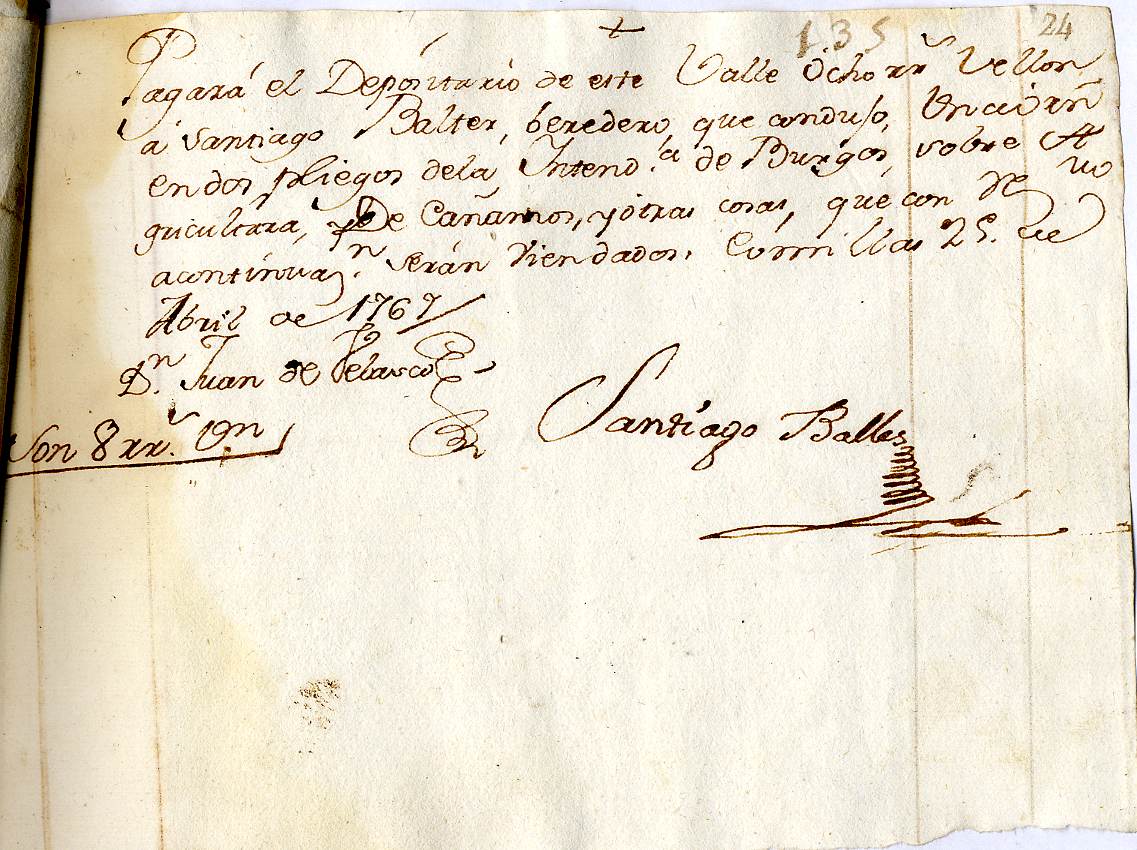 135 24
Pagará el Depositario de este Valle ôcho rrs Vellon,
â Santiago Balter, beredero, que condujo,
en dos pliegos dela Intend.ª de Burgos, sobre A
gricultura, De Cañamos, y ótras cosas, que con su rvo
acontinuaⁿ. serán Viendados. Comillas 25. de
Abril de 1767
Dⁿ. Juan de Velasco
Santiago Balles
Son 8 rrs. Vn